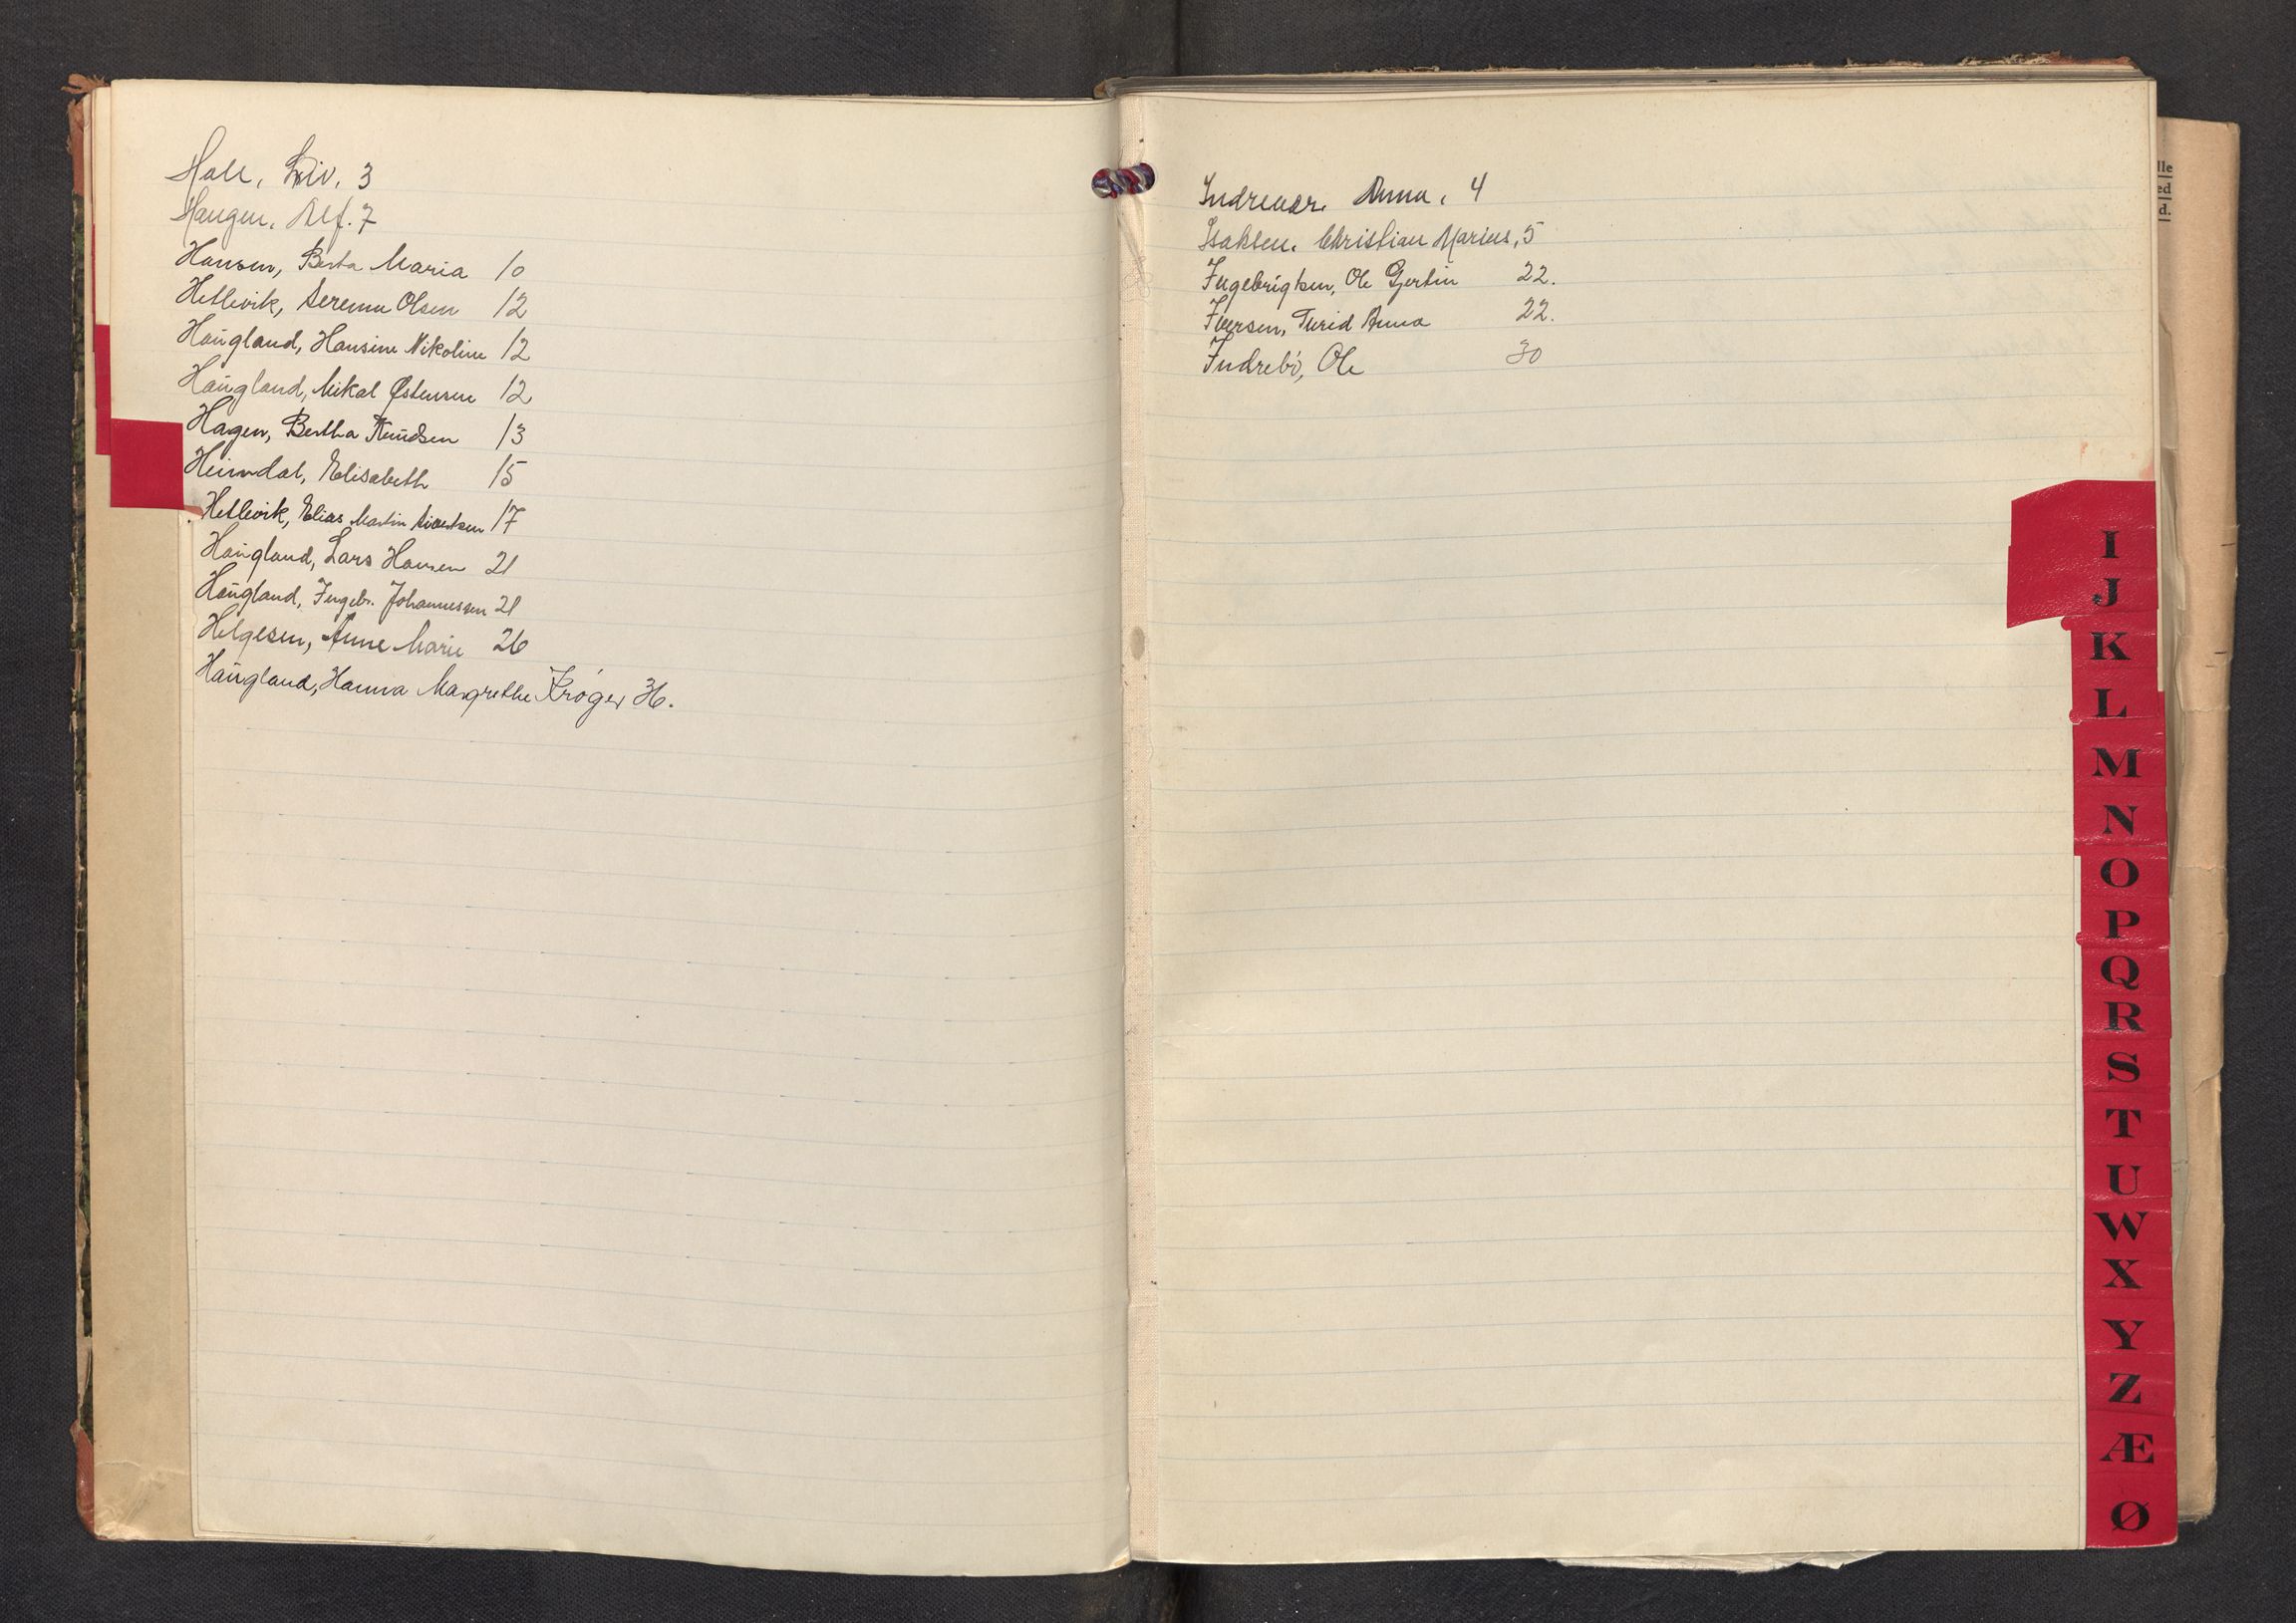 Hall, Liv. 3
Haugen, Alf. 7
Hansen, Berta Maria 10
Hetlevik, Serema Olsen 12
Haŭgland, Hansine Nikoline 12
Haŭgland, Mikal Østensen 12
Hagen, Bertha Knŭdsen 13
Heimdal, Elisabeth 15
Hetlevik, Elias Martin Sivertsen 17
Haŭgland, Lars Hansen 21
Haŭgland, Ingebr. Johannessen 21
Helgesen, Anne Marie 26
Haŭgland, Hanna Margrethe Krøger
Anna, 4
Isaksen, Christian Marius, 5
Ingebrigtsen, Ole Gjertin 22.
Iversen, Turid Anna 22.
Indrebö, Ole 30
lle
ed
d.
I
J
K
L
M
N
O
P
Q
R
S
T
U
W
X
Y
Z
Æ
Ø